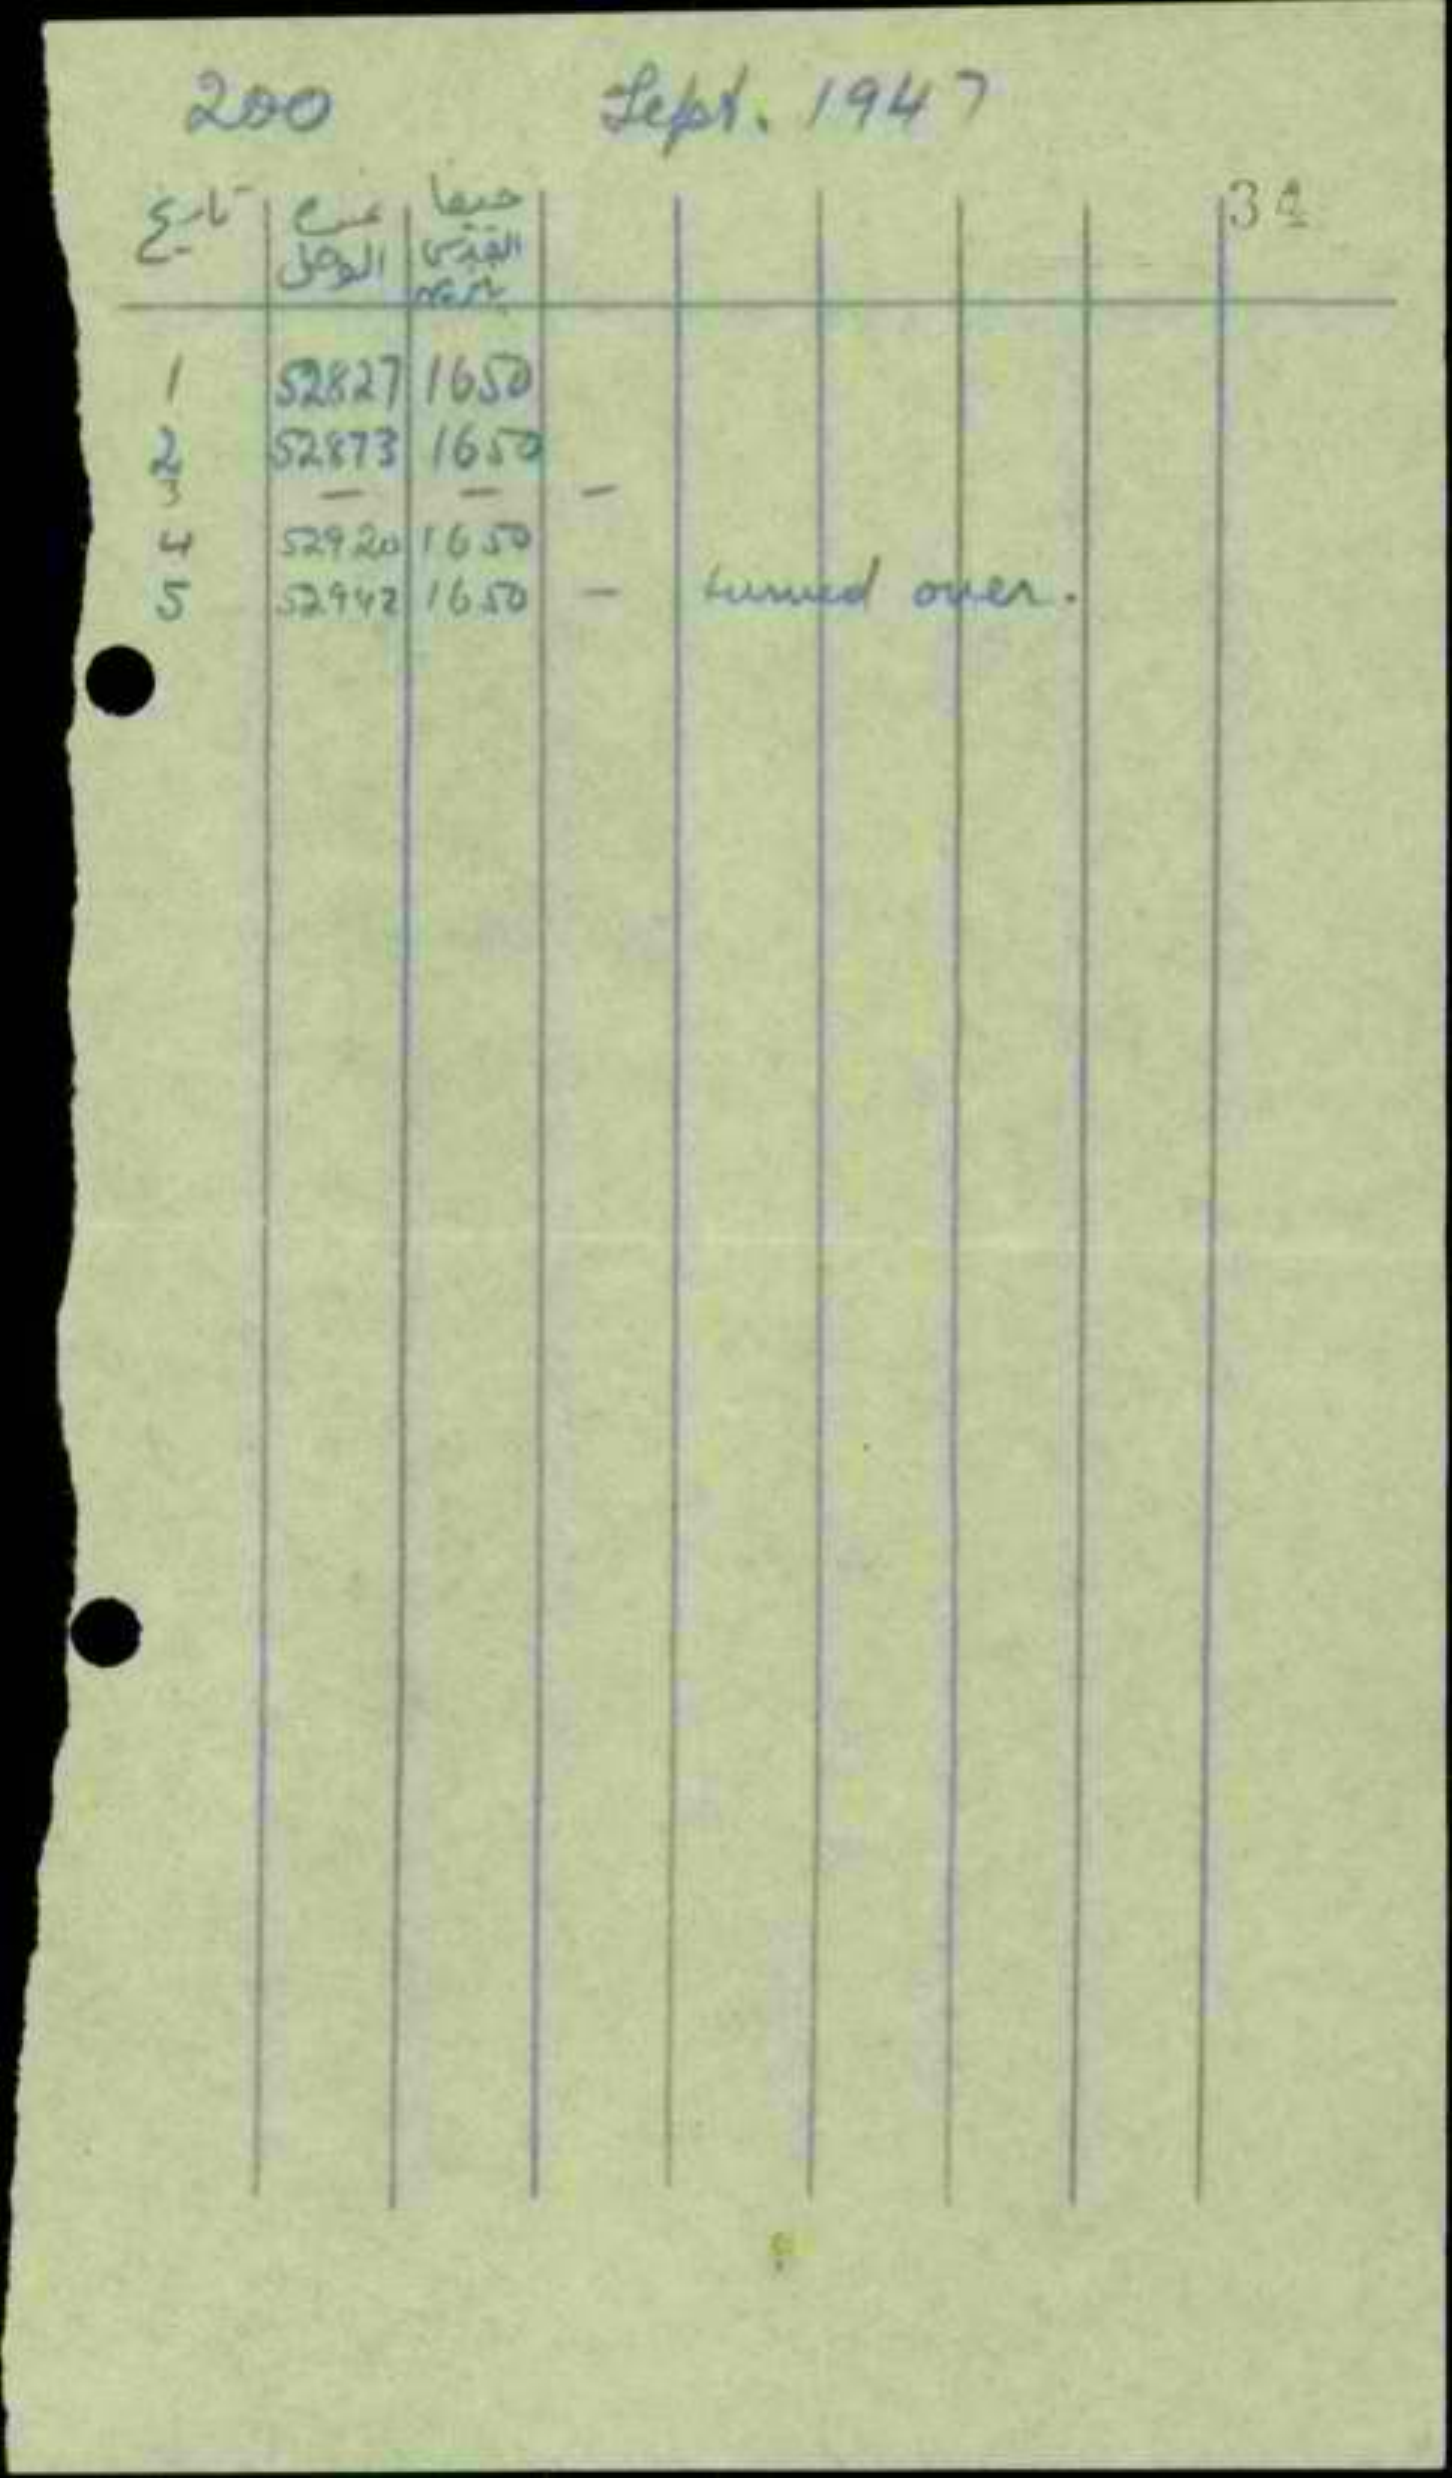 200 Sept. 1947
34
تاريخ حيفا
القدس
1 52827 1650
2 52873 1650
3 — — —
4 52920 1650
5 52942 1650 — turned over.